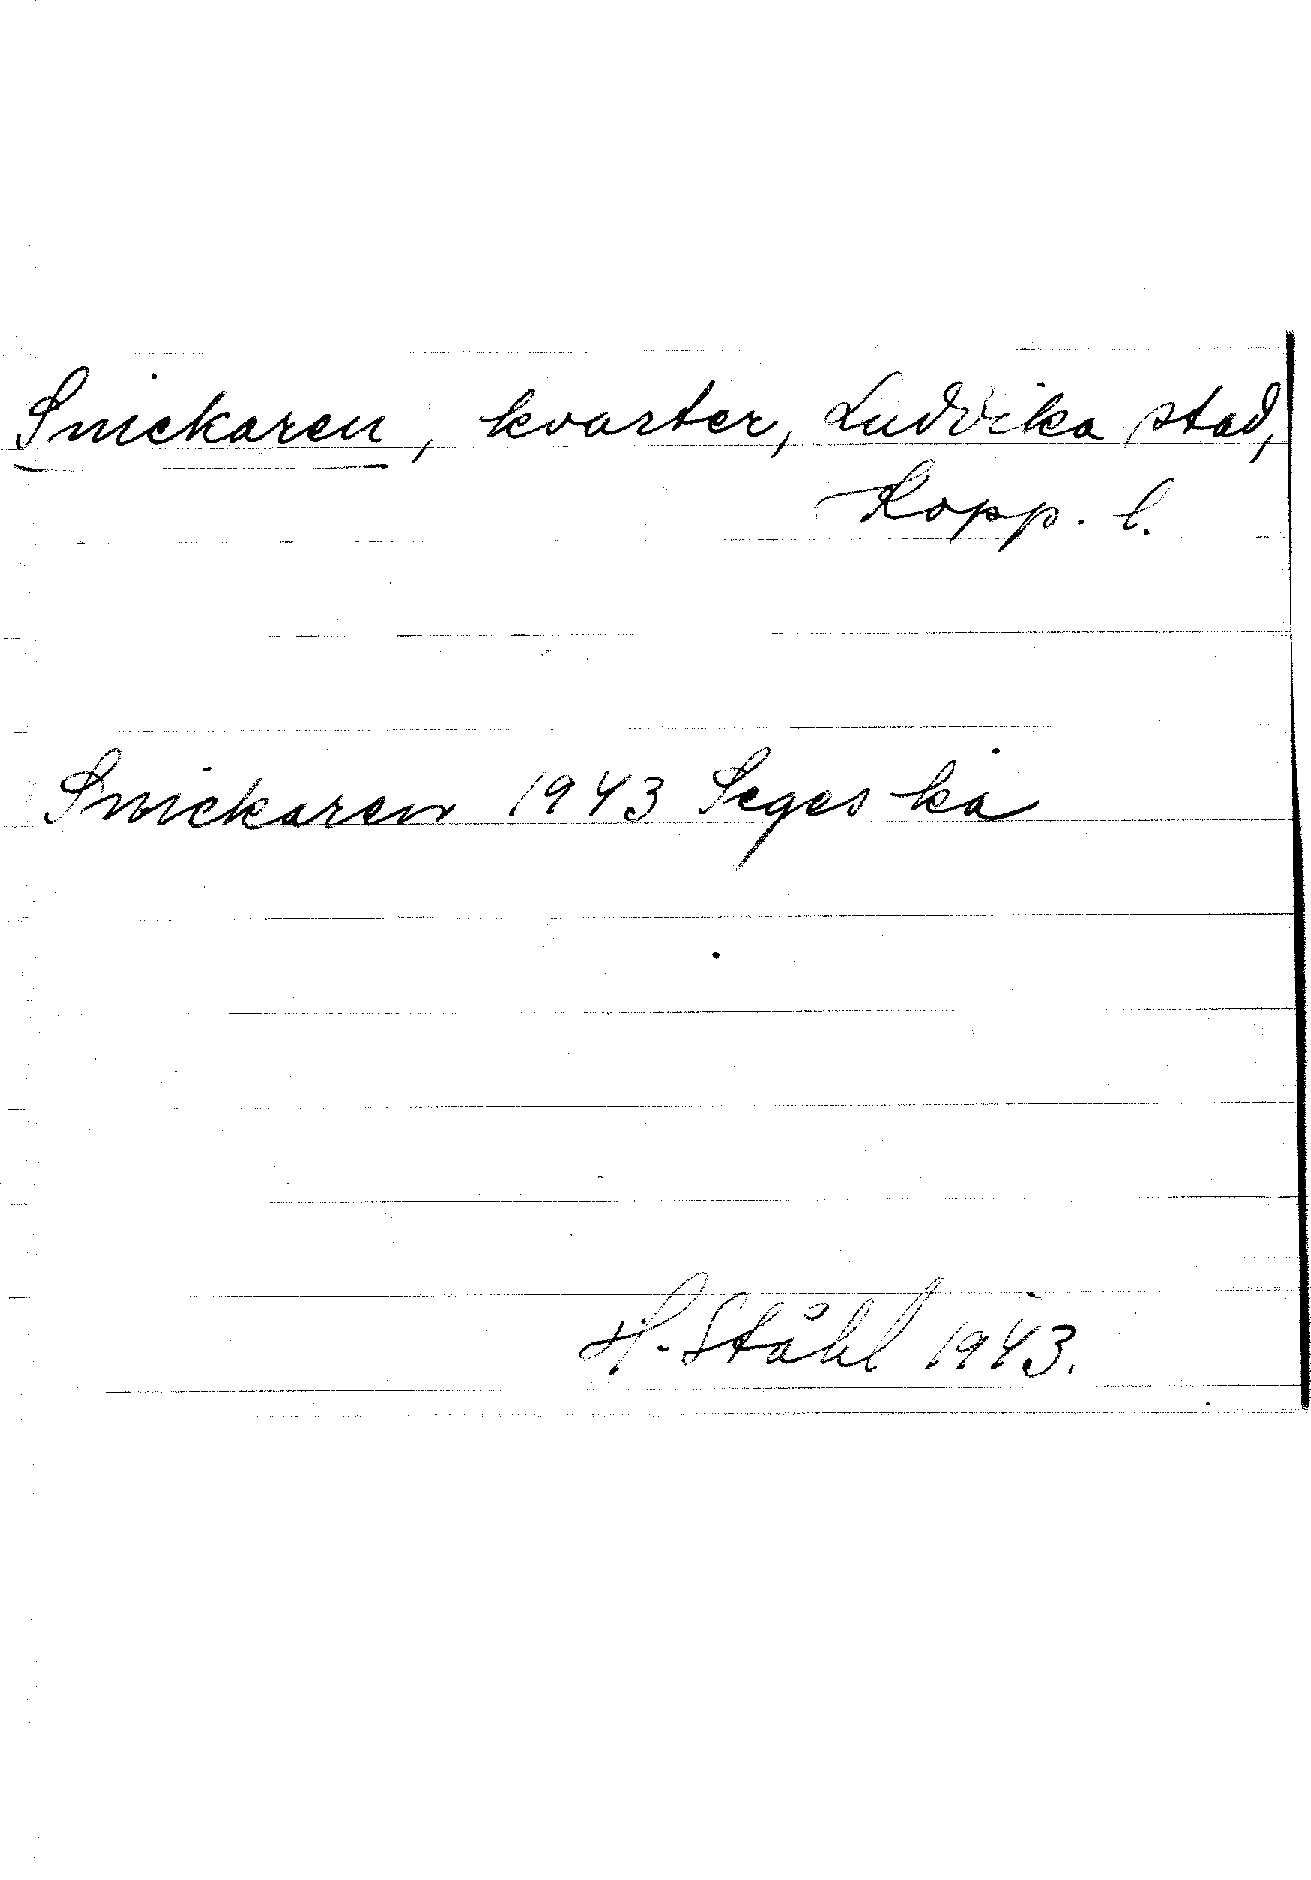 Snickaren, kvarter, Ludvika stad,
Kopp. l.
Snickaren 1943 Seges ka
H. Ståhl 1943.